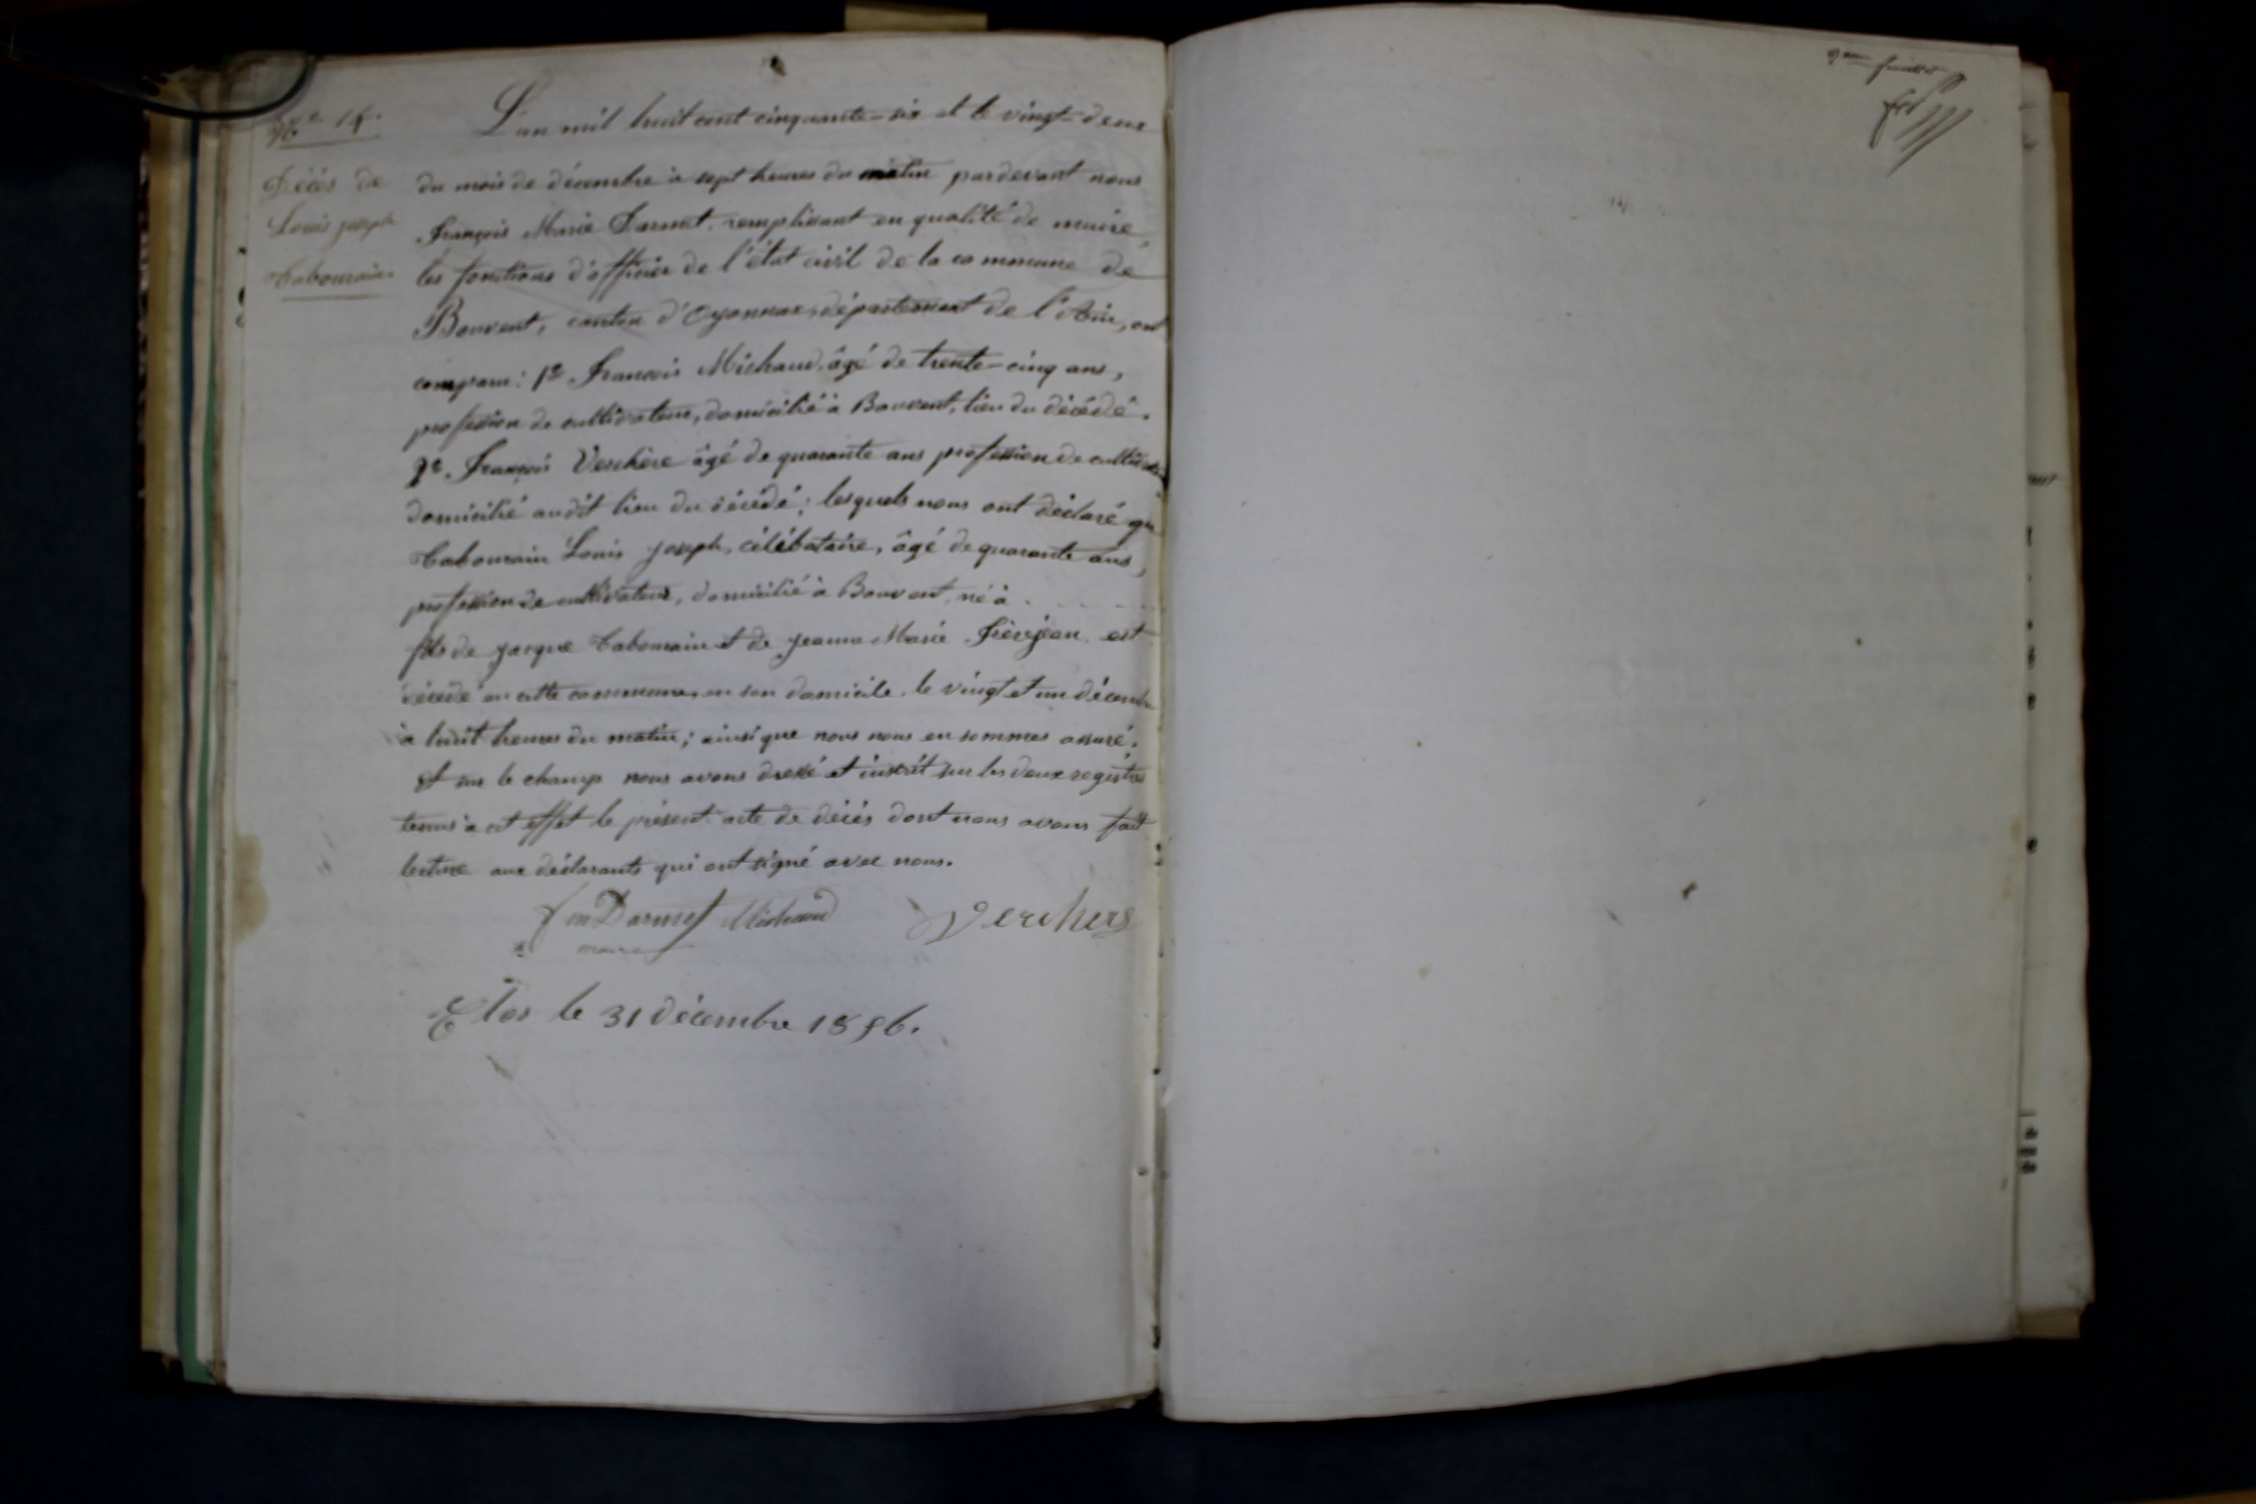 N° 15.
Décès de
Louis joseph
Tabourain
L'an mil huit cent cinquante-six et le vingt-deux
du mois de décembre à sept heures du matin pardevant nous
François Marie Darmet remplissant en qualité de maire,
les fonctions d'officier de l'état civil de la commune de
Bouvent, canton d'Oyonnax, département de l'Ain, ont
comparu: 1° François Michaud, âgé de trente-cinq ans,
profession de cultivateur, domicilié à Bouvent, lieu du décédé.
2° François Verchère âgé de quarante ans profession de cultivateur
domicilié audit lieu du décédé; lesquels nous ont déclaré que
Tabourain Louis joseph, célibataire, âgé de quarante ans,
profession de cultivateur, domicilié à Bouvent, né à
fils de jacque Tabourain et de jeanne Marie Frèrejean est
décédé en cette commune, en son domicile, le vingt et un décembre
à huit heures du matin; ainsi que nous nous en sommes assuré.
Et sur le champ nous avons dressé et inscrit sur les deux registres
tenus à cet effet le présent acte de décès dont nous avons fait
lecture aux déclarants qui ont signé avec nous.
Darmet Michaud Verchers
maire
Clos le 31 décembre 1856.
feuillet